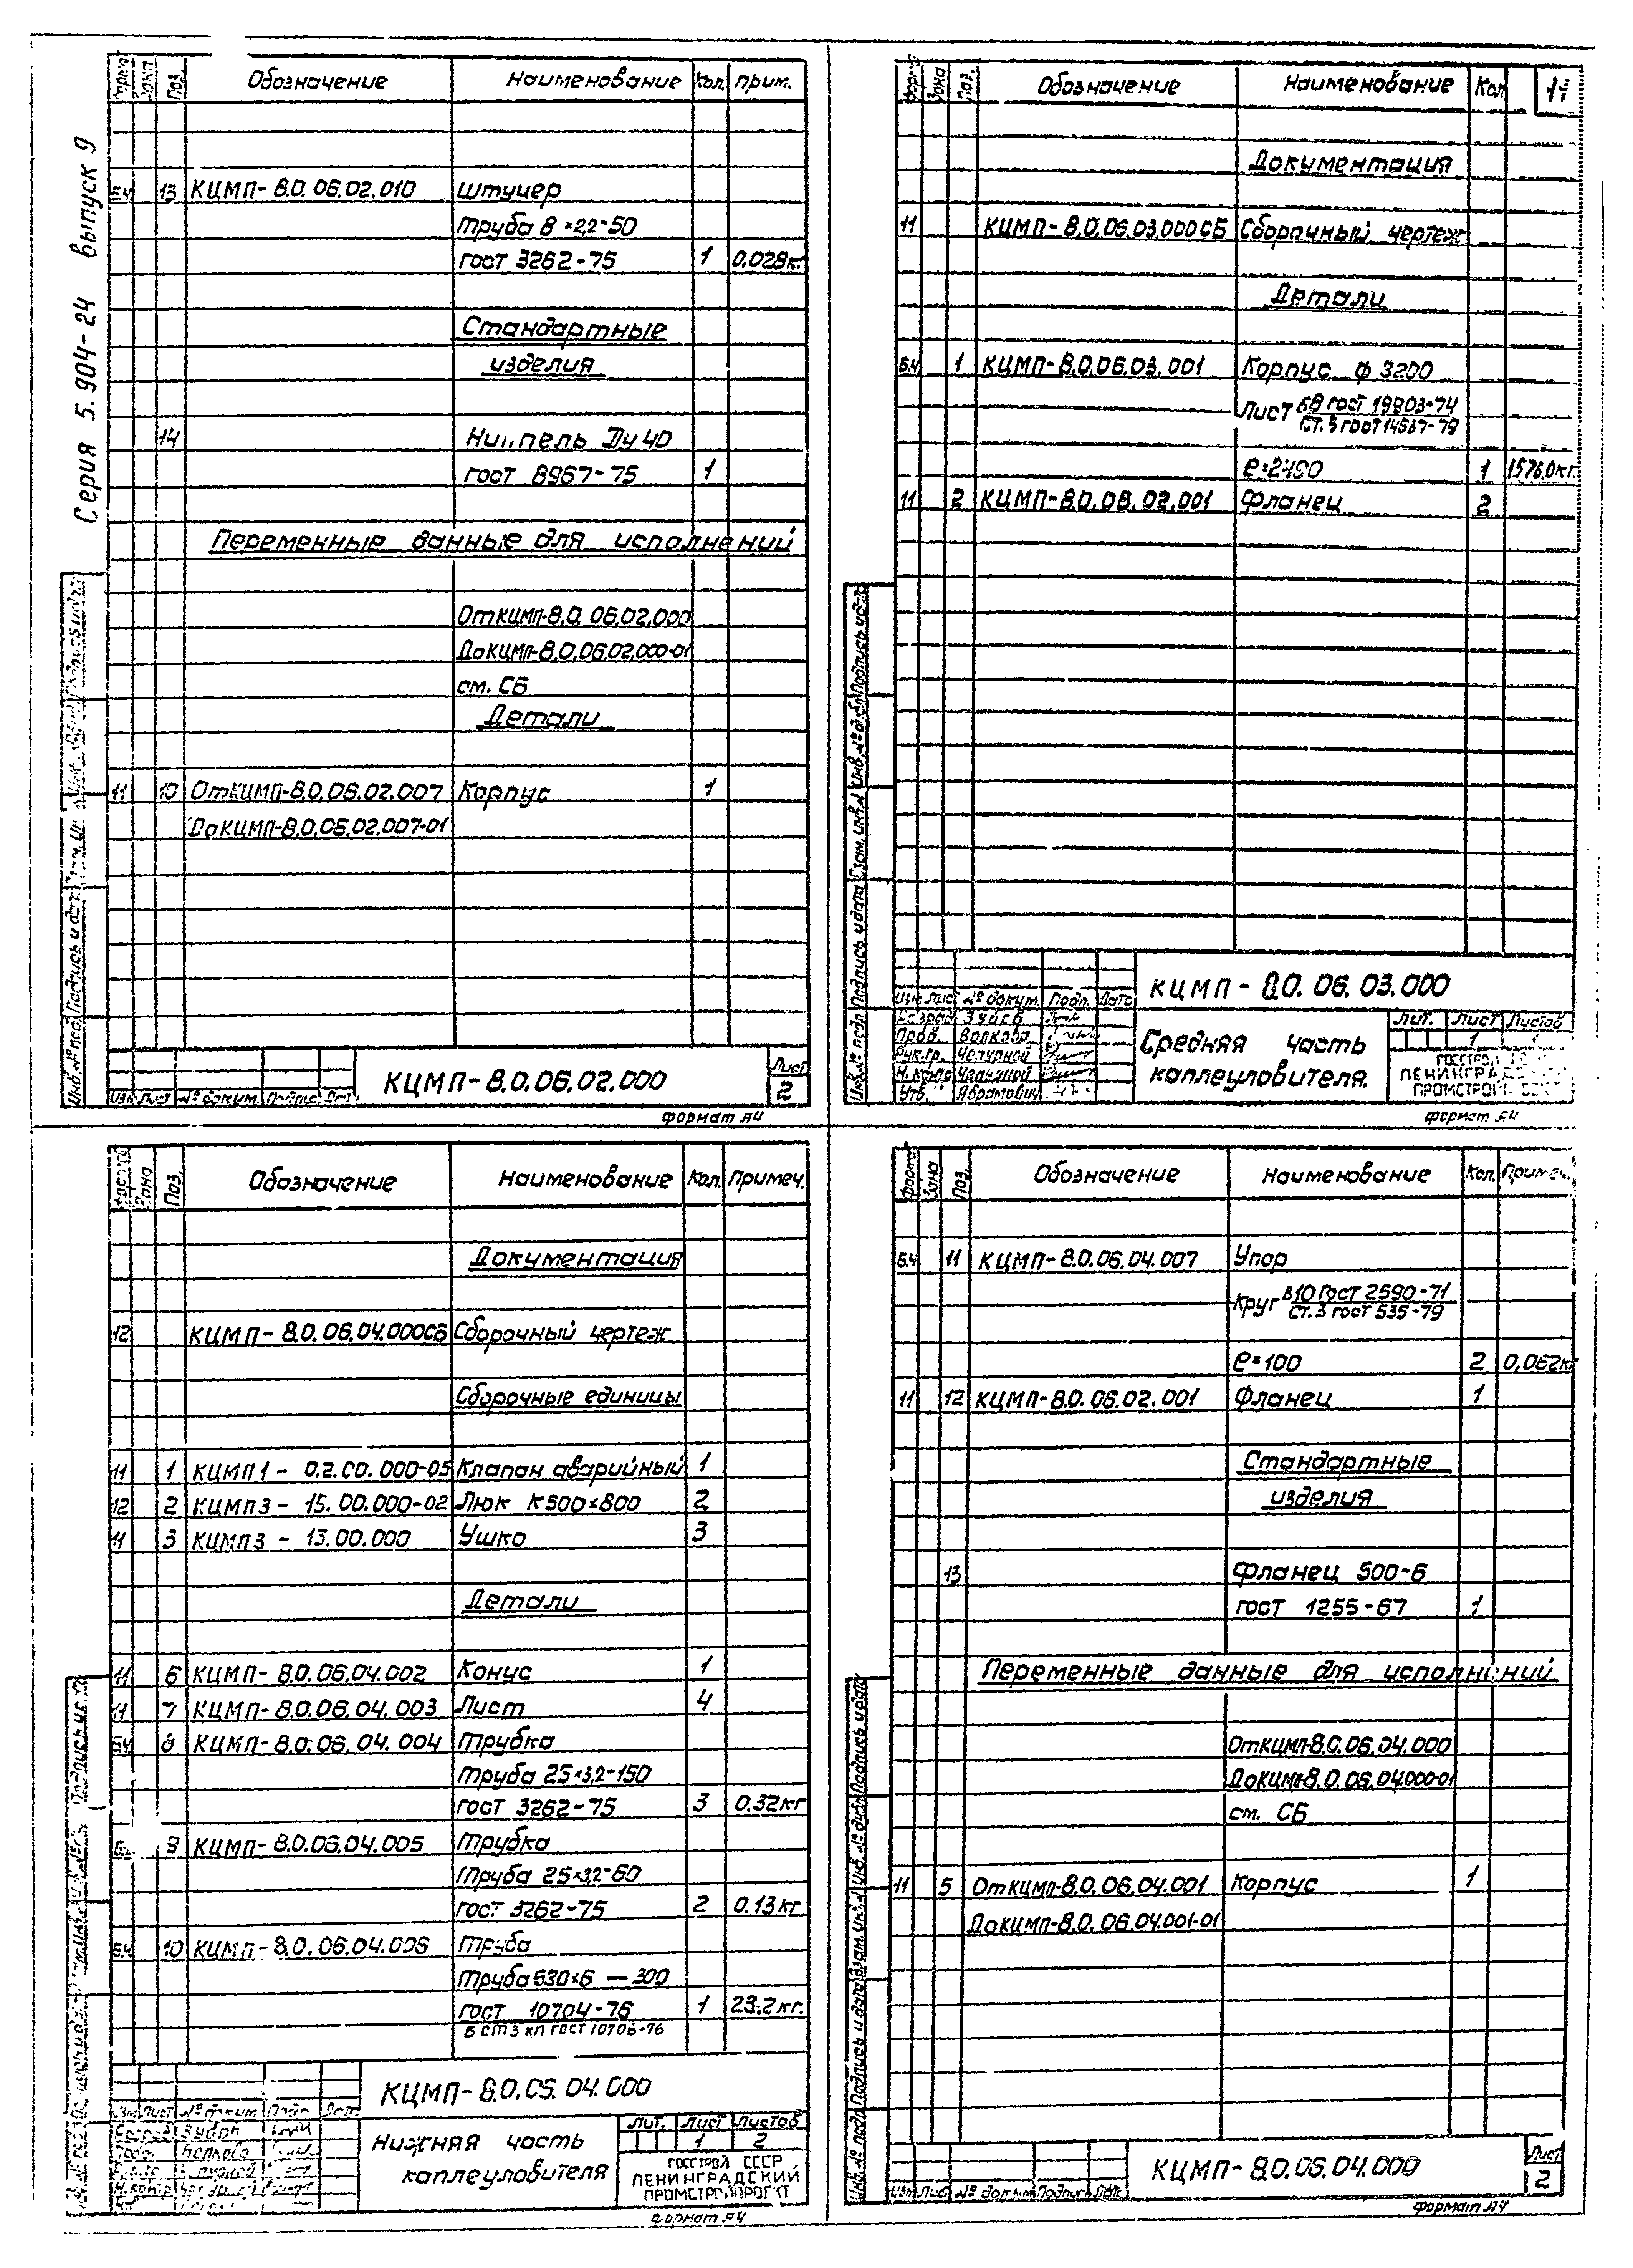 Серия 5.904-24 выпуск 9
Поз. Обозначение Наименование Кол. прим.
Б.Ч 13 КЦМП-8.0.06.02.010 Штуцер
Труба 8×2,2-50
ГОСТ 3262-75 1 0.028кг
Стандартные
изделия
14 Ниппель Ду 40
ГОСТ 8967-75 1
Переменные данные для исполнений
От КЦМП-8.0.06.02.000
До КЦМП-8.0.06.02.000-01
см. СБ
Детали
11 10 От КЦМП-8.0.06.02.007 Корпус 1
До КЦМП-8.0.06.02.007-01
КЦМП-8.0.06.02.000
Лист
2
Изм Лист № докум.
Инв. № подл. Подпись и дата
формат А4
Зона Поз. Обозначение Наименование Кол 11
Документация
11 КЦМП-8.0.06.03.000СБ Сборочный чертеж
Детали
Б.Ч 1 КЦМП-8.0.06.03.001 Корпус ф 3200
Лист Б8 ГОСТ 19903-74
Ст.3 ГОСТ 14637-79
ℓ=2490 1 1576.0кг.
11 2 КЦМП-8.0.06.02.001 Фланец 2
КЦМП-8.0.06.03.000
Изм Лист № докум. Подп. Дата
Разраб Зуйсв
Пров. Волкова
Рук.гр. Чепурной
Н.контр Чепурной
Утв. Абрамович
Средняя часть
каплеуловителя.
Лит. Лист Листов
1 1
ГОССТРОЙ
ЛЕНИНГРАДС
ПРОМСТРОЙ
Инв. № подл Подпись и дата Взам. инв. № Инв. № дубл Подпись и дата
формат А4
Зона Поз. Обозначение Наименование Кол. Примеч.
Документация
12 КЦМП-8.0.06.04.000СБ Сборочный чертеж
Сборочные единицы
11 1 КЦМП1-0.2.00.000-05 Клапан аварийный 1
12 2 КЦМП3-15.00.000-02 Люк К500×800 2
11 3 КЦМП3-13.00.000 Ушко 3
Детали
11 6 КЦМП-8.0.06.04.002 Конус 1
11 7 КЦМП-8.0.06.04.003 Лист 4
Б.Ч. 8 КЦМП-8.0.06.04.004 Трубка
Труба 25×3,2-150
ГОСТ 3262-75 3 0.32кг
9 КЦМП-8.0.06.04.005 Трубка
Труба 25×3,2-60
ГОСТ 3262-75 2 0.13кг
Б.Ч 10 КЦМП-8.0.06.04.006 Труба
Труба 530×6 — 300
ГОСТ 10704-76 1 23.2кг.
Б СТ3 кп ГОСТ 10706-76
КЦМП-8.0.06.04.000
Изм Лист № докум Подп Дата
Нижняя часть
каплеуловителя
Лит. Лист Листов
1 2
ГОССТРОЙ СССР
ЛЕНИНГРАДСКИЙ
ПРОМСТРОЙПРОЕКТ
формат А4
Формат Зона Поз. Обозначение Наименование Кол. Примеч.
Б.Ч 11 КЦМП-8.0.06.04.007 Упор
Круг В10 ГОСТ 2590-71
Ст.3 ГОСТ 535-79
ℓ=100 2 0,062кг
11 12 КЦМП-8.0.06.02.001 Фланец 1
Стандартные
изделия
13 Фланец 500-6
ГОСТ 1255-67 1
Переменные данные для исполнений
От КЦМП-8.0.06.04.000
До КЦМП-8.0.06.04.000-01
см. СБ
11 5 От КЦМП-8.0.06.04.001 Корпус 1
До КЦМП-8.0.06.04.001-01
КЦМП-8.0.06.04.000
Лист
2
Изм Лист № докум Подпись Дата
Инв. № подл Подпись и дата Взам. инв. № Инв. № дубл Подпись и дата
формат А4